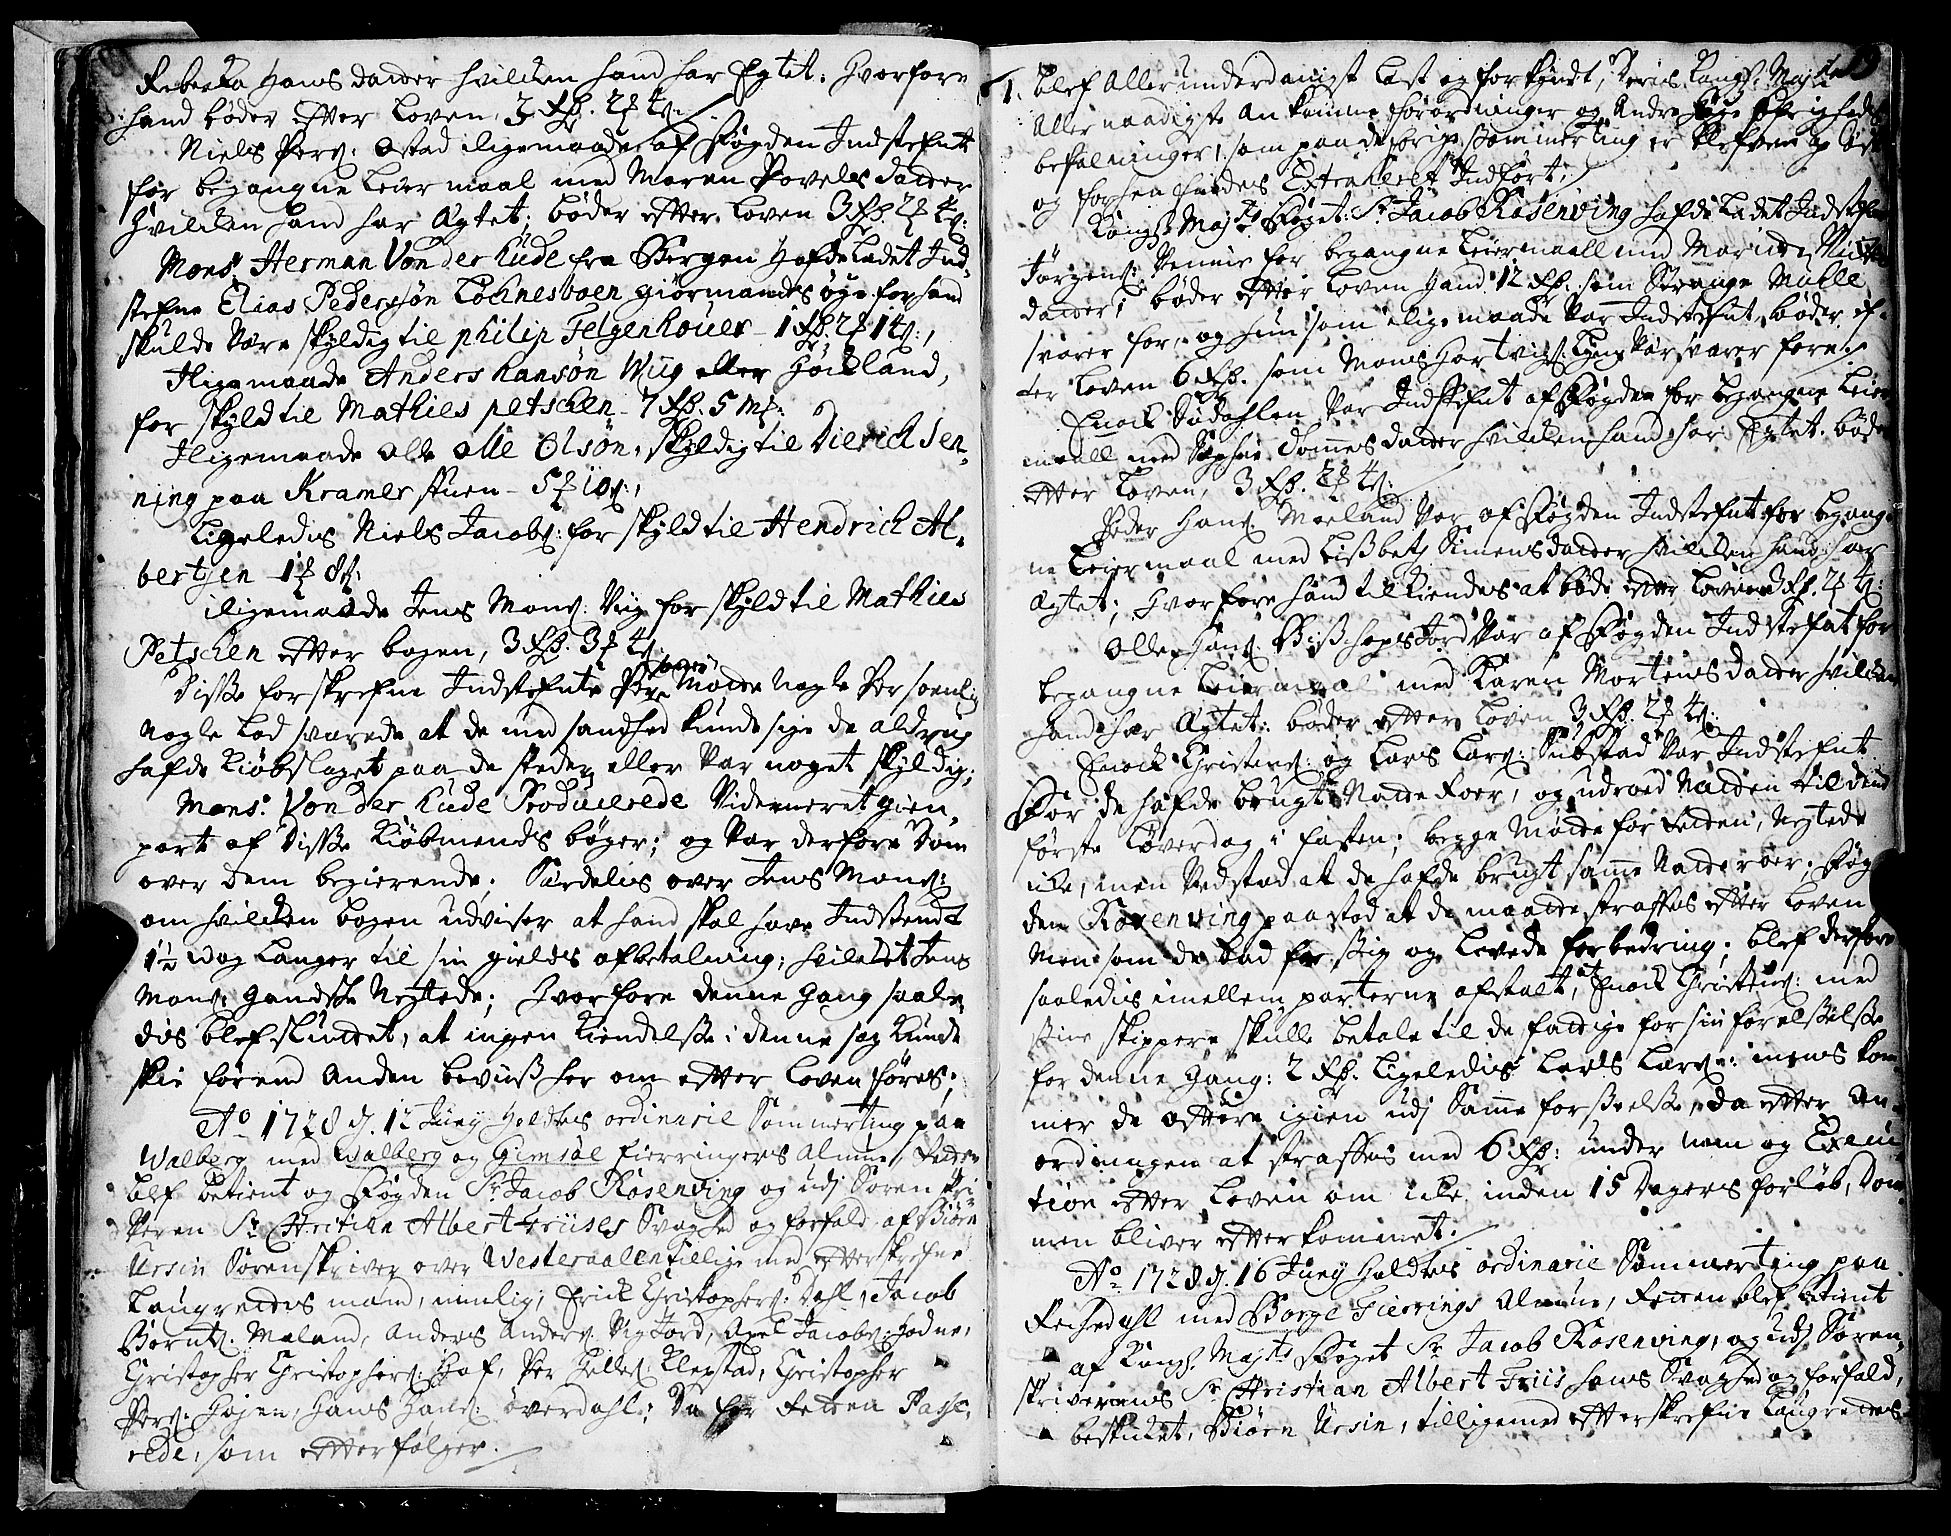 Rebecka Hans daatter hvilcken hand har Egtet. Hvorfore
hand bøder effter Loven, 3 Rdr. 2 ß
Niels Pers: Ostad iligemaade af Fogden Indstefnt
for begangne Leiermaal med Maren Povels daatter
hvilcken hand har Ægtet; bøder effter Loven 3 Rdr. 2
Mons: Herman Von der Lude fra Bergen hafde Ladet Ind,
stefne Elias Pedersøn giørmandts øge for hand
skulde være skyldig til philip Felgenhouer 1 Rdr. 2 1 ß,
Iligemaade Anders hansøn Wiig eller Høidland,
for skyld til Mathies petschen 7 Rdr. 5 mk:
Iligemaade Olle Olsøn, skyldig til Dierich Jen,
ning paa Kramer stuen 5 10 ß,
Ligeledis Niels Jacobs: for skyld til Hendrich Al,
bertsen 1 8 ß:
iligemaade Jens Mons: Viig for skyld til Mathies
Petschen effter bogen, 3 Rdr. 3 4 ß
Disse forskrefne Indstefnte møtte Nogle Personlig
Nogle Lod svarede at de med sandhed kunde sige de aldrig
hafde kiøbslaget paa de steder eller var noget skyldig;
Mons: Von der Lude Producerede Videmeret gien,
part af Disse kiøbmends bøger; og var derfore Dom
over dem begierende; Særdelis over Jens Mons:
om hvilcken bogen udviser at hand skal have Indsendt
1½ wog Langer til sin gields afbetalning; hvilcket Jens
Mons: gandske Negtede; Hvorfore denne Gang saale,
dis blef sluttet, at ingen kiendelse i denne sag kunde
skie førend Anden beviiß her om effter Loven føres;
Ao 1728 d. 12 Junij holdtes ordinarie Sommerting paa
Walberg med Walberg og Gimsøe fierringers Almue, Retten
blef betient og Fogden Sr Jacob Rosenving og udj Soren skri,
veren Sr Christian Albert Friises Svaghed og forfald af Biørn
Ursin Sorenskriver over Westeraalen tillige med effterskrefne
Laugrettes mænd, nemlig, Erich Christophers: Dahl, Jacob
Bernts: Maland, Anders Anders: Vigjord, Axel Jacobs: Hodne,
Christopher Christophers: Hof, Per Hellis: Klepstad, Christopher
Pers: Højen, Hans Hans: Overdahl; Da for Retten Passe,
rede, som effterfølger.
19
1. blef Allerunderdanigst Læst og forkyndt, Deris Kongl: Majts
Allernaadigste Ankomne forordninger og Andre høye Øfrigheds
befalninger, som paa de Sommerting er blefven
og forhen findes Extraheret Indført;
Kongl: Majts Foget Sr Jacob Rosenving hafde Ladet Indstefne
Jørgens: Vennis for begangne Leiermaall med Maritte Niels
daatter; bøder effter Loven hand 12 Rdr. som Strange Mulle
svarer for, og hun som iligemaade var Indstefnt, bøder ef,
ter Loven 6 Rdr. som Mons Hartvigs: Lyngvær svarer fore.
Enock Sødahlen var Indstefnt af Fogden for begangne Leier
maall med Sophie Tomes daatter hvilcken hand har Egtet. bøder
effter Loven, 3 Rdr. 2 4 ß:
Peder Hans: Moeland Var af Fogden Indstefnt for begang,
ne Leiermaal med Lisbeth Simens daatter hvilcken hand har
Ægtet; Hvorfore hand tilkiendes at bøde effter Loven 3 Rdr. 2 4 ß:
Olle Hans: Bißkopsjord Var af Fogden Indstefnt for
begangne Leiermaal med Karen Mortens daatter hvilcken
hand har Ægtet: bøder effter Loven 3 Rdr. 2 4 ß:
Enock Christens: og Lars Lars: Substad Var Indstefnt
For de hafde brugt Natte Roer, og udroed Natten til dend
første Løverdag i fasten; begge Møtte for Retten, Negtede
icke, men Vedstod at de hafde brugt same Natte roer; Fog,
den Rosenving paastod at de maatte straffes effter Loven
Men som de bad for sig og Lovede forbedring; blef derfore
saaledis imellem parterne afhalt, at Enock Christens: med
sine skippere skulle betale til de fattige for sin forseelse
for denne Gang: 2 Rdr. Ligeledis Lars Lars: mens kom,
mer de offtere igien udj Same forseelse, da effter An,
ordningen at straffes med 6 Rdr: under Nam og Execu,
tion effter Loven om icke inden 15 Dagers forløb, Dom,
men bliver effterkommet.
Ao 1728 d. 16 Junij Holdtes ordinarie Sommerting paa
Rechedahl med Borge Fierrings Almue, Retten blef betient
af Kongl. Majts Foget Sr Jacob Rosenving, og udj Soren,
skriverens Sr Christian Albert Friis hans Svaghed og forfald,
beskicket, Biørn Ursin, tilligemed effterskrefne Laugrettes